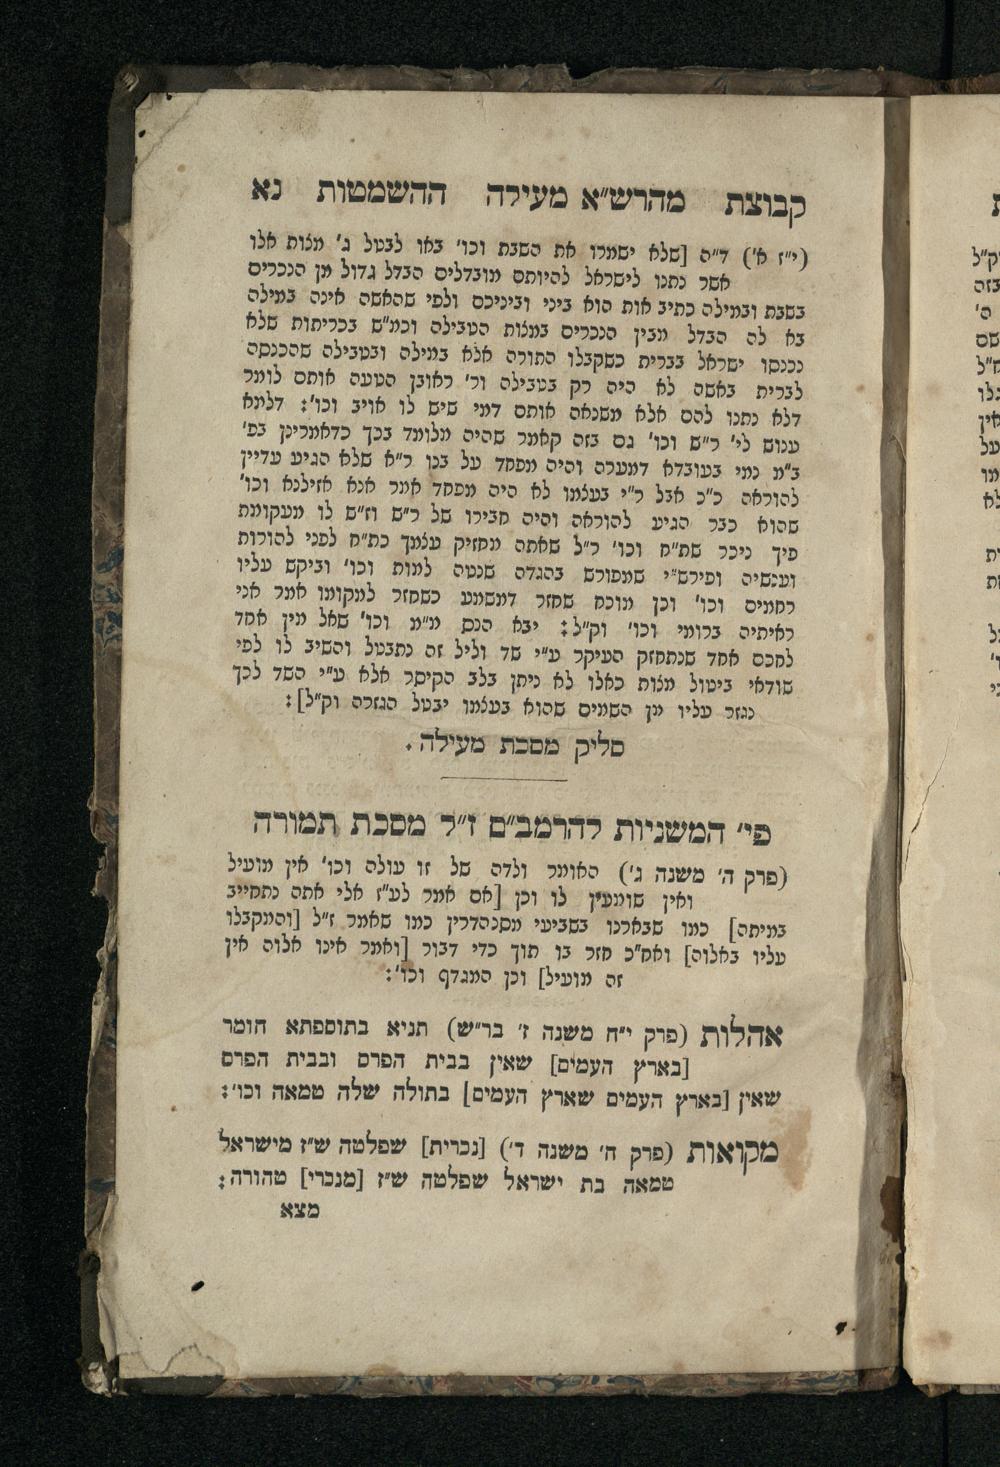 קבוצת מהרש״א מעילה ההשמטות נא
(י״ז א׳) ד״ה [שלא ישמרו את השבת וכו׳ באו לבטל ג׳ מצות אלו
אשר נתנו לישראל להיותם מובדלים הבדל גדול מן הנכרים
בשבת ובמילה כתיב אות הוא ביני וביניכם ולפי שהאשה אינה במילה
בא לה הבדל מבין הנכרים במצות הטבילה וכמ״ש בכריתות שלא
נכנסו ישראל בברית כשקבלו התורה אלא במילה ובטבילה שהכנסה
לברית באשה לא היה רק בטבילה ור׳ ראובן הטעה אותם לומר
דלא נתנו להם אלא משנאה אותם דמי שיש לו אויב וכו׳: דלמא
ענוש לי׳ ר״ש וכו׳ גם בזה קאמר שהיה מלומד בכך כדאמרינן בפ׳
ב״מ נמי בעובדא דמערה והיה מפחד על בנו ר״א שלא הגיע עדיין
להוראה כ״כ אבל ר״י בעצמו לא היה מפחד אמר אנא אזילנא וכו׳
שהוא כבר הגיע להוראה והיה חבירו של ר״ש וז״ש לו מעקומת
פיך ניכר שת״ח וכו׳ ר״ל שאתה מחזיק עצמך כת״ח לפני להורות
וענשיה ופירש״י שמפורש בהגדה שנטה למות וכו׳ וביקש עליו
רחמים וכו׳ וכן מוכח שחזר דמשמע כשחזר למקומו אמר אני
ראיתיה ברומי וכו׳ וק״ל: יבא הנס מ״מ וכו׳ שאל מין אחד
לחכם אחד שנתחזק העיקר ע״י שד וליל זה נתבטל והשיב לו לפי
שודאי ביטול מצות כאלו לא ניתן בלב הקיסר אלא ע״י השד לכך
נגזר עליו מן השמים שהוא בעצמו יבטל הגזרה וק״ל]:
סליק מסכת מעילה.
פי׳ המשניות להרמב״ם ז״ל מסכת תמורה
(פרק ה׳ משנה ג׳) האומר ולדה של זו עולה וכו׳ אין מועיל
ואין שומעין לו וכן [אם אמר לע״ז אלי אתה נתחייב
במיתה] כמו שבארנו בשביעי מסנהדרין כמו שאמר ז״ל [והמקבלו
עליו באלוה] ואח״כ חזר בו תוך כדי דבור [ואמר אינו אלוה אין
זה מועיל] וכן המגדף וכו׳:
אהלות (פרק י״ח משנה ז׳ בר״ש) תניא בתוספתא חומר
[בארץ העמים] שאין בבית הפרס ובבית הפרס
שאין [בארץ העמים שארץ העמים] בתולה שלה טמאה וכו׳:
מקואות (פרק ה׳ משנה ד׳) [נכרית] שפלטה ש״ז מישראל
טמאה בת ישראל שפלטה ש״ז [מנכרי] טהורה:
מצא